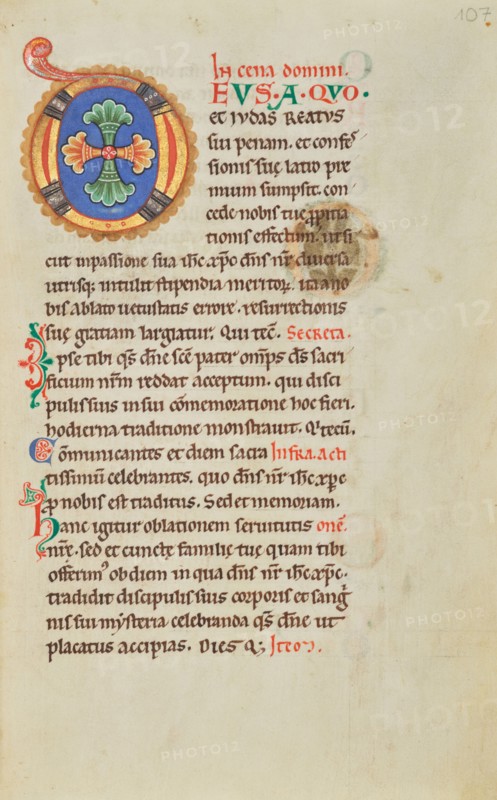 107
In cena domini.
EUS·A·QUO·
et iudas reatus
sui penam. et confes
sionis suę latro pre
mium sumpsit. con
cede nobis tuę ꝓpitia
tionis effectum. ut si
cut inpassione sua ihc xpc dn̄s nr̄ diuersa
utrisq; intulit stipendia meritoꝝ. ita a no
bis ablato uetustatis errore. resurrectionis
suę gratiam largiatur. Qui tec̄. Secreta.
Ipse tibi qs̄ dn̄e sc̄e pater omp̄s ds̄ sacri
ficium nr̄m reddat acceptum. qui disci
pulis suis in sui cōmemoratione hoc fieri.
hodierna traditione monstrauit. Q'tecū.
Cōmunicantes et diem sacra Infra. acti
tissimū celebrantes. quo dn̄s nr̄ ihc xpc
ꝓ nobis est traditus. Sed et memoriam.
Hanc igitur oblationem seruitutis onē.
nr̄ę. sed et cunctę familię tuę quam tibi
offerim' ob diem in qua dn̄s nr̄ ihc xpc.
tradidit discipulis suis corporis et sanḡ
nis sui mysteria celebranda qs̄ dn̄e ut
placatus accipias. Dies Q;